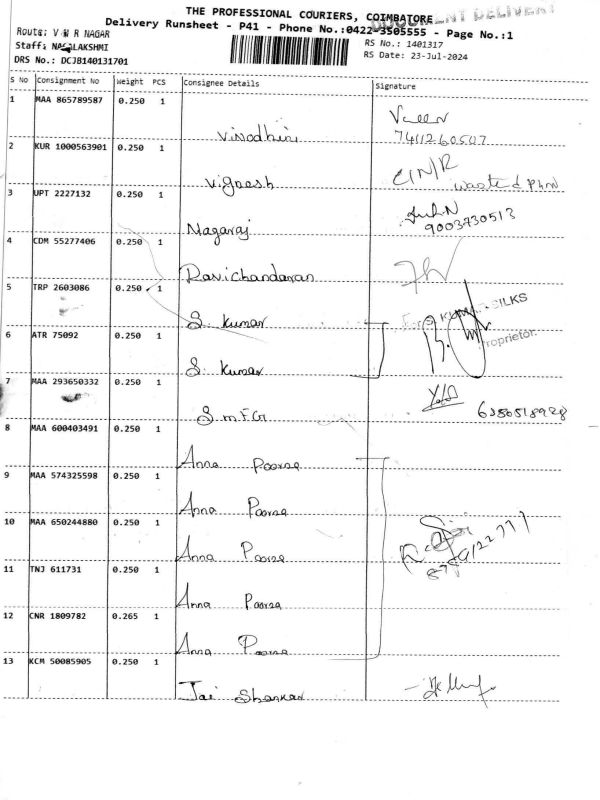 THE PROFESSIONAL COURIERS, COIMBATORE
DOCUMENT DELIVERY
Delivery Runsheet - P41 - Phone No.:0422-3505555 - Page No.:1
Route: V N R NAGAR
Staff: NAGALAKSHMI
DRS No.: DCJB140131701
RS No.: 1401317
RS Date: 23-Jul-2024
S No Consignment No Weight PCS Consignee Details Signature
1 MAA 865789587 0.250 1
Vinodhini 7411260507
2 KUR 1000563901 0.250 1
Vignesh
3 UPT 2227132 0.250 1
Nagaraj 9003730513
4 CDM 55277406 0.250 1
Ravichandaran
5 TRP 2603086 0.250 1
S. Kumar SILKS
6 ATR 75092 0.250 1
Proprietor.
S. Kumar
7 MAA 293650332 0.250 1
S m F G 6380518928
8 MAA 600403491 0.250 1
Anna Poorna
9 MAA 574325598 0.250 1
Anna Poorna
10 MAA 650244880 0.250 1
Anna Poorna
11 TNJ 611731 0.250 1
Anna Poorna
12 CNR 1809782 0.265 1
Anna Poorna
13 KCM 50085905 0.250 1
Jai Shankar